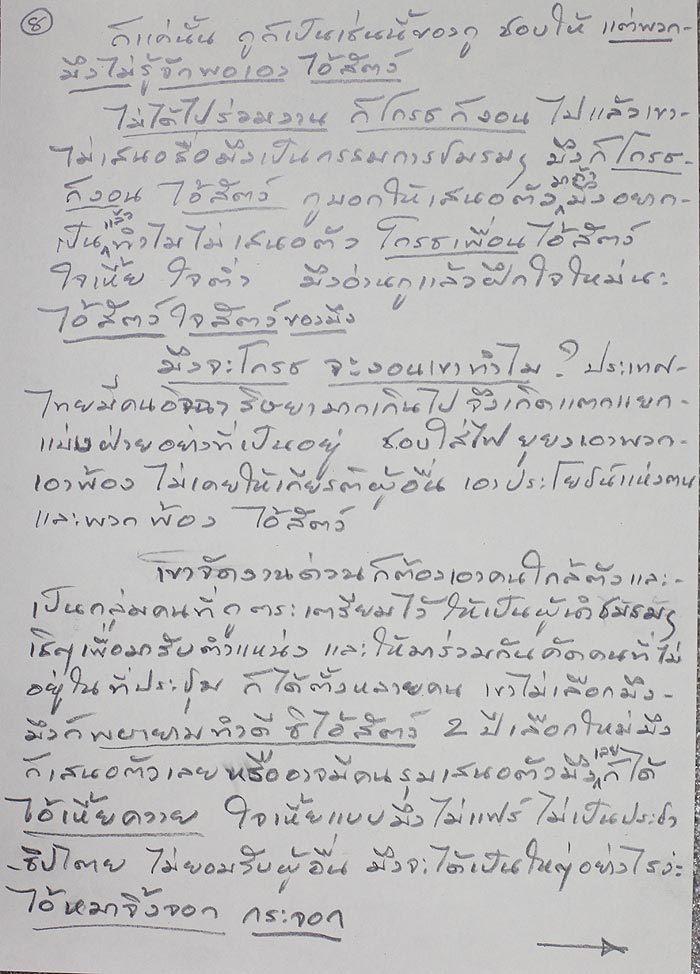 ๘
ก็แค่นั้น กูก็เป็นเช่นนี้ของกู ชอบให้ แต่พวก-
มึงไม่รู้จักพอเอง ไอ้สัตว์
ไม่ได้ไปร่วมงาน ก็โกรธ ก็งอน ไปแล้วเขา-
ไม่เสนอชื่อมึงเป็นกรรมการชมรมฯ มึงก็โกรธ-
ก็งอน ไอ้สัตว์ กูบอกให้เสนอตัวมาถ้ามึงอยาก-
เป็นแล้วทำไมไม่เสนอตัว โกรธเพื่อนไอ้สัตว์
ใจเหี้ย ใจต่ำ มึงอ่านกูแล้วฝึกใจใหม่นะ
ไอ้สัตว์ ใจสัตว์ของมึง
มึงจะโกรธ จะงอนเขาทำไม ? ประเทศ-
ไทยมีคนอิจฉาริษยามากเกินไป จึงเกิดแตกแยก-
แบ่งฝ่ายอย่างที่เป็นอยู่ ชอบใส่ไฟ ยุยงเอาพวก-
เอาพ้อง ไม่เคยให้เกียรติผู้อื่น เอาประโยชน์แห่งตน
และพวกพ้อง ไอ้สัตว์
เขาจัดงานด่วนก็ต้องเอาคนใกล้ตัวและ-
เป็นกลุ่มคนที่กูตระเตรียมไว้ ให้เป็นผู้นำชมรมฯ
เชิญเพื่อมารับตำแหน่ง และให้มาร่วมกันคัดคนที่ไม่
อยู่ในที่ประชุม ก็ได้ตั้งหลายคน เขาไม่เลือกมึง-
มึงก็พยายามทำดีซิไอ้สัตว์ 2 ปีเลือกใหม่มึง
ก็เสนอตัวเลย หรืออาจมีคนรุมเสนอตัวมึงเลยก็ได้
ไอ้เหี้ยควาย ใจเหี้ยแบบมึงไม่แฟร์ ไม่เป็นประชา
-ธิปไตย ไม่ยอมรับผู้อื่น มึงจะได้เป็นใหญ่อย่างไรวะ
ไอ้หมาจิ้งจอก กระจอก